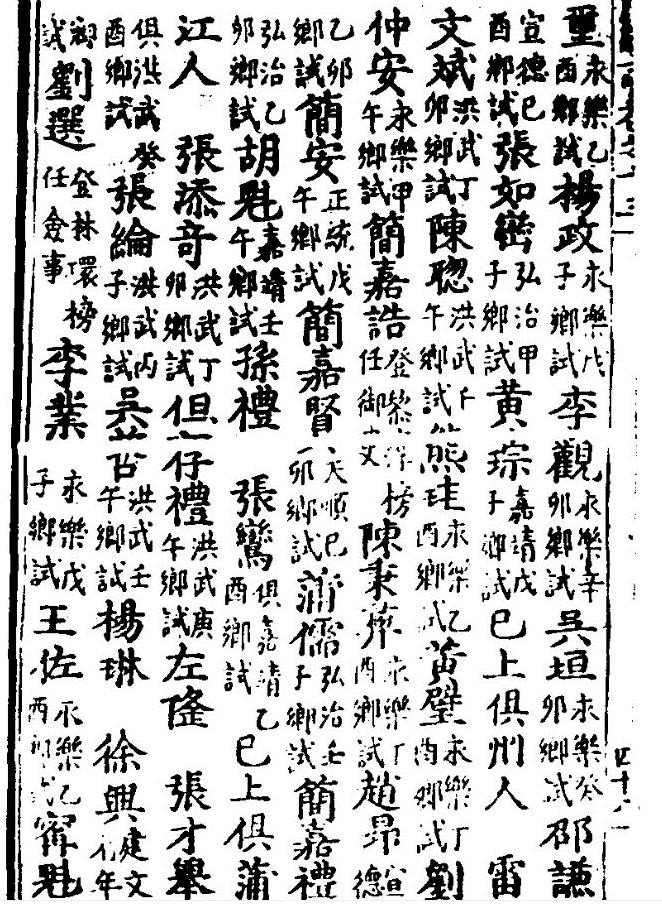 璽永樂乙酉鄉試楊政永樂戊子鄉試李觀永樂辛卯鄉試吳垣永樂癸卯鄉試邵謙
宣德己酉鄉試張如巒弘治甲子鄉試黃琮嘉靖戊子鄉試已上俱州人 雷
文斌洪武丁卯鄉試陳聰洪武午鄉試熊珪永樂乙酉鄉試黃璧永樂丁酉鄉試劉
仲安永樂甲午鄉試簡嘉誥登黎淳榜任御史陳秉彝永樂丁酉鄉試趙昂宣德
乙卯鄉試簡安正統戊午鄉試簡嘉賢天順己卯鄉試蒲儒弘治壬子鄉試簡嘉禮
弘治乙卯鄉試胡魁嘉靖壬午鄉試孫禮 張鸞俱嘉靖乙酉鄉試已上俱蒲
江人 張添奇洪武丁卯鄉試但仔禮洪武庚午鄉試左隆 張才舉
俱洪武癸酉鄉試張綸洪武丙子鄉試吳洪武壬午鄉試楊琳 徐興建文年
試劉選登林環榜任僉事李業永樂戊子鄉試王佐永樂乙酉鄉試甯魁